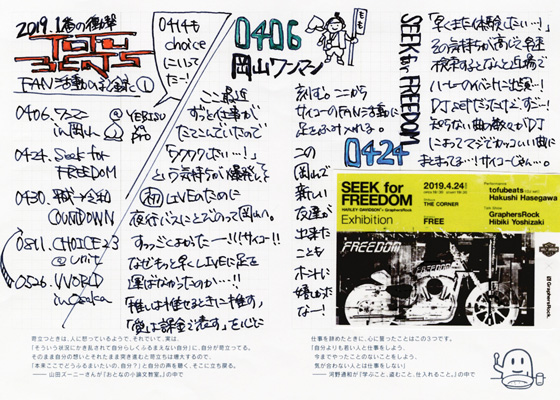 2019.1番の衝撃
TOFU
BEATS
FAN活動の記録①
0406. ワンマン @YEBISU
in 岡山 YA PRO
0424. Seek for
FREEDOM
0430. 平成→令和
COUNDOWN
0511. CHOICE23
@unit.
0526. WORLD
in Osaka
0414も
choice
にいって
たー!
ここ最近
ずっと仕事が
たてこんでいたので
「ワクワクしたい…!」
という気持ちが爆発して
初LIVEのために
夜行バスにとびのって岡山へ。
すっごくよかったー!!!サイコー!!
なぜもっと早くLIVEに足を
運ばなかったのか…!!
「推しは推せるときに推す」
「愛は課金で表す」を心に
0406
岡山ワンマン
もも
刻む。ここから
サイコーのFAN活動に
足をふみ入れる。
この
岡山で
新しい
友達が
出来た
ことも
ホントに
嬉しかった
なー!
SEEK for FREEDOM
0424
「早くまた体験したい…!」
その気持ちが高じて早速
検索するとなんと近場で
ハーレーのイベントに出演…!
DJ setだったけどすっごー!
知らない曲の数々がDJ
によってマジでかっこいい曲に
SEEK for
FREEDOM
HARLEY-DAVIDSON × GraphersRock
Exhibition
2019.4.24
THE CORNER
FREE
tofubeats
Hakushi Hasegawa
GraphersRock
Hibiki Yoshizaki
FREEDOM
GraphersRock.
苛立つときは、人に怒っているようで、それでいて、実は、
「そういう状況にかき乱されて自分らしくふるまえない自分」に、自分が苛立ってる。
そのまま自分の想いとそれたまま突き進むと苛立ちは増大するので、
「本来ここでどうふるまいたいの、自分?」と自分の声を聴く、そこに立ち戻る。
―― 山田ズーニーさんが『おとなの小論文教室。』の中で
仕事を辞めたときに、心に誓ったことはこの3つです。
「自分よりも若い人と仕事をしよう、
今までやったことのないことをしよう、
気が合わない人とは仕事をしない」
―― 河野通和が『学ぶこと、盗むこと、仕入れること。』の中で